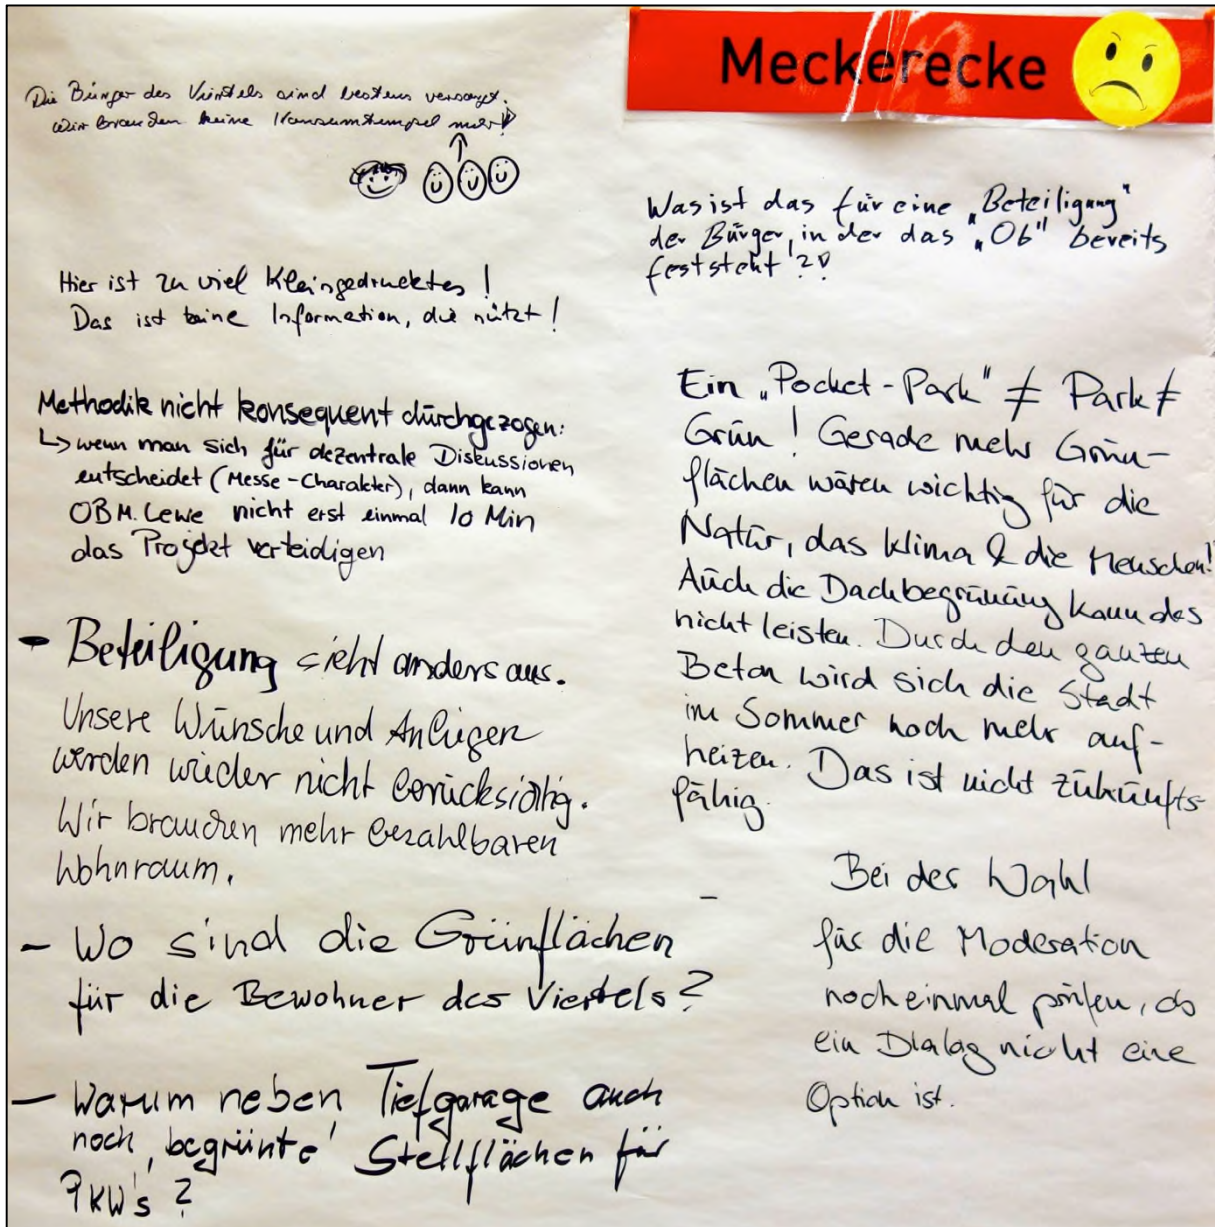 Meckerecke
Die Bürger des Viertels sind bestens versorgt.
Wir brauchen keine Konsumtempel mehr!
Hier ist zu viel Kleingedrucktes!
Das ist keine Information, die nützt!
Methodik nicht konsequent durchgezogen:
↳ wenn man sich für dezentrale Diskussionen
entscheidet (Messe-Charakter), dann kann
OB M. Lewe nicht erst einmal 10 Min
das Projekt verteidigen
- Beteiligung sieht anders aus.
Unsere Wünsche und Anliegen
werden wieder nicht berücksichtig.
Wir brauchen mehr bezahlbaren
Wohnraum.
- Wo sind die Grünflächen
für die Bewohner des Viertels?
- Warum neben Tiefgarage auch
noch ,begrünte' Stellflächen für
PKW's?
Was ist das für eine "Beteiligung"
der Bürger, in der das "Ob" bereits
feststeht ?!
Ein "Pocket-Park" ≠ Park ≠
Grün! Gerade mehr Grün-
flächen wären wichtig für die
Natur, das Klima & die Menschen!
Auch die Dachbegrünung kann das
nicht leisten. Durch den ganzen
Beton wird sich die Stadt
im Sommer noch mehr auf-
heizen. Das ist nicht zukunfts-
fähig.
Bei der Wahl
für die Moderation
noch einmal prüfen, ob
ein Dialog nicht eine
Option ist.